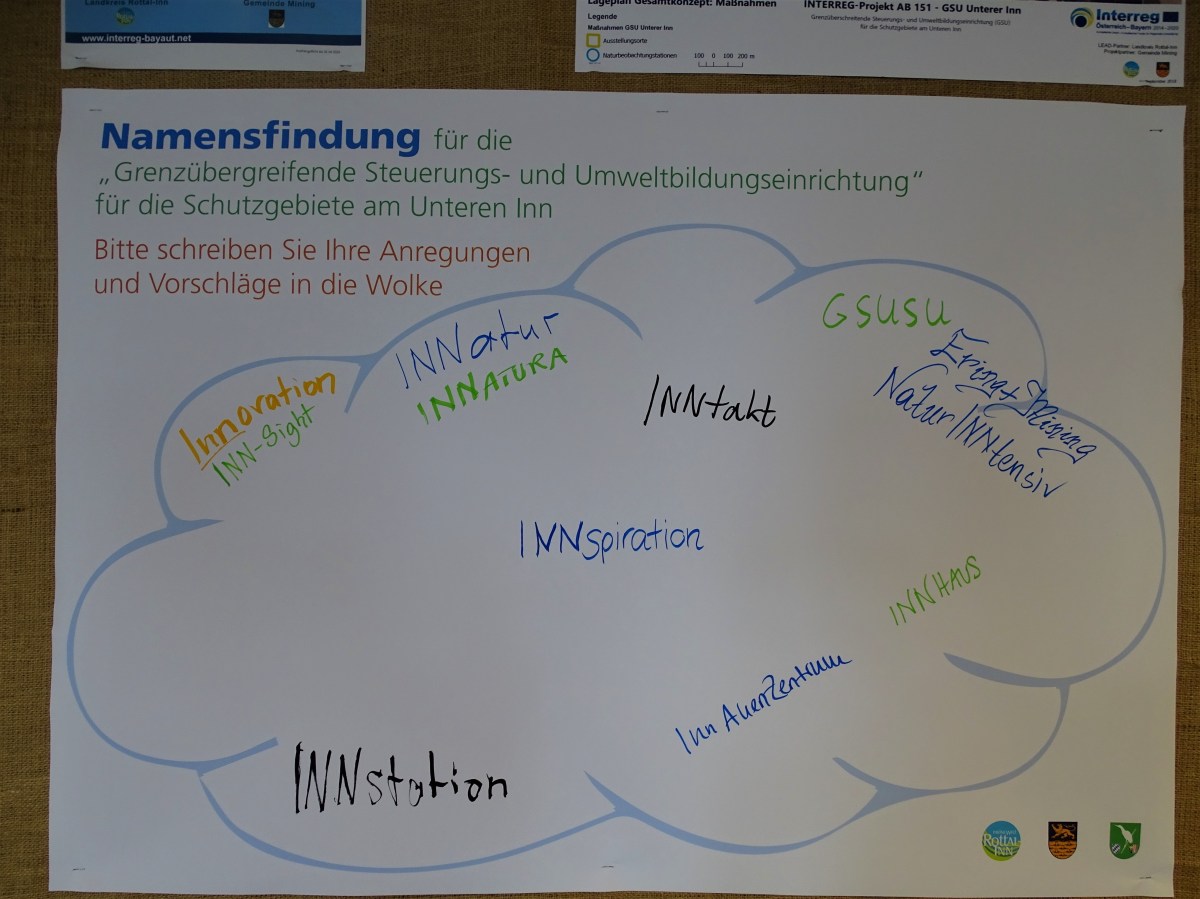 Landkreis Rottal-Inn
Gemeinde Mining
www.interreg-bayaut.net
Lageplan Gesamtkonzept: Maßnahmen
Legende
Maßnahmen GSU Unterer Inn
Ausstellungsorte
Naturbeobachtungsstationen
100 0 100 200 m
INTERREG-Projekt AB 151 - GSU Unterer Inn
Grenzüberschreitende Steuerungs- und Umweltbildungseinrichtung (GSU)
für die Schutzgebiete am Unteren Inn
Interreg
Österreich-Bayern 2014-2020
LEAD-Partner: Landkreis Rottal-Inn
Projektpartner: Gemeinde Mining
Namensfindung für die
„Grenzübergreifende Steuerungs- und Umweltbildungseinrichtung“
für die Schutzgebiete am Unteren Inn
Bitte schreiben Sie Ihre Anregungen
und Vorschläge in die Wolke
Innovation
INN-Sight
INNatur
INNATURA
INNtakt
GSUSU
Ering+Mining
Natur INNtensiv
INNspiration
INNHAUS
Inn AuenZentrum
INNstation
ROTTAL
INN